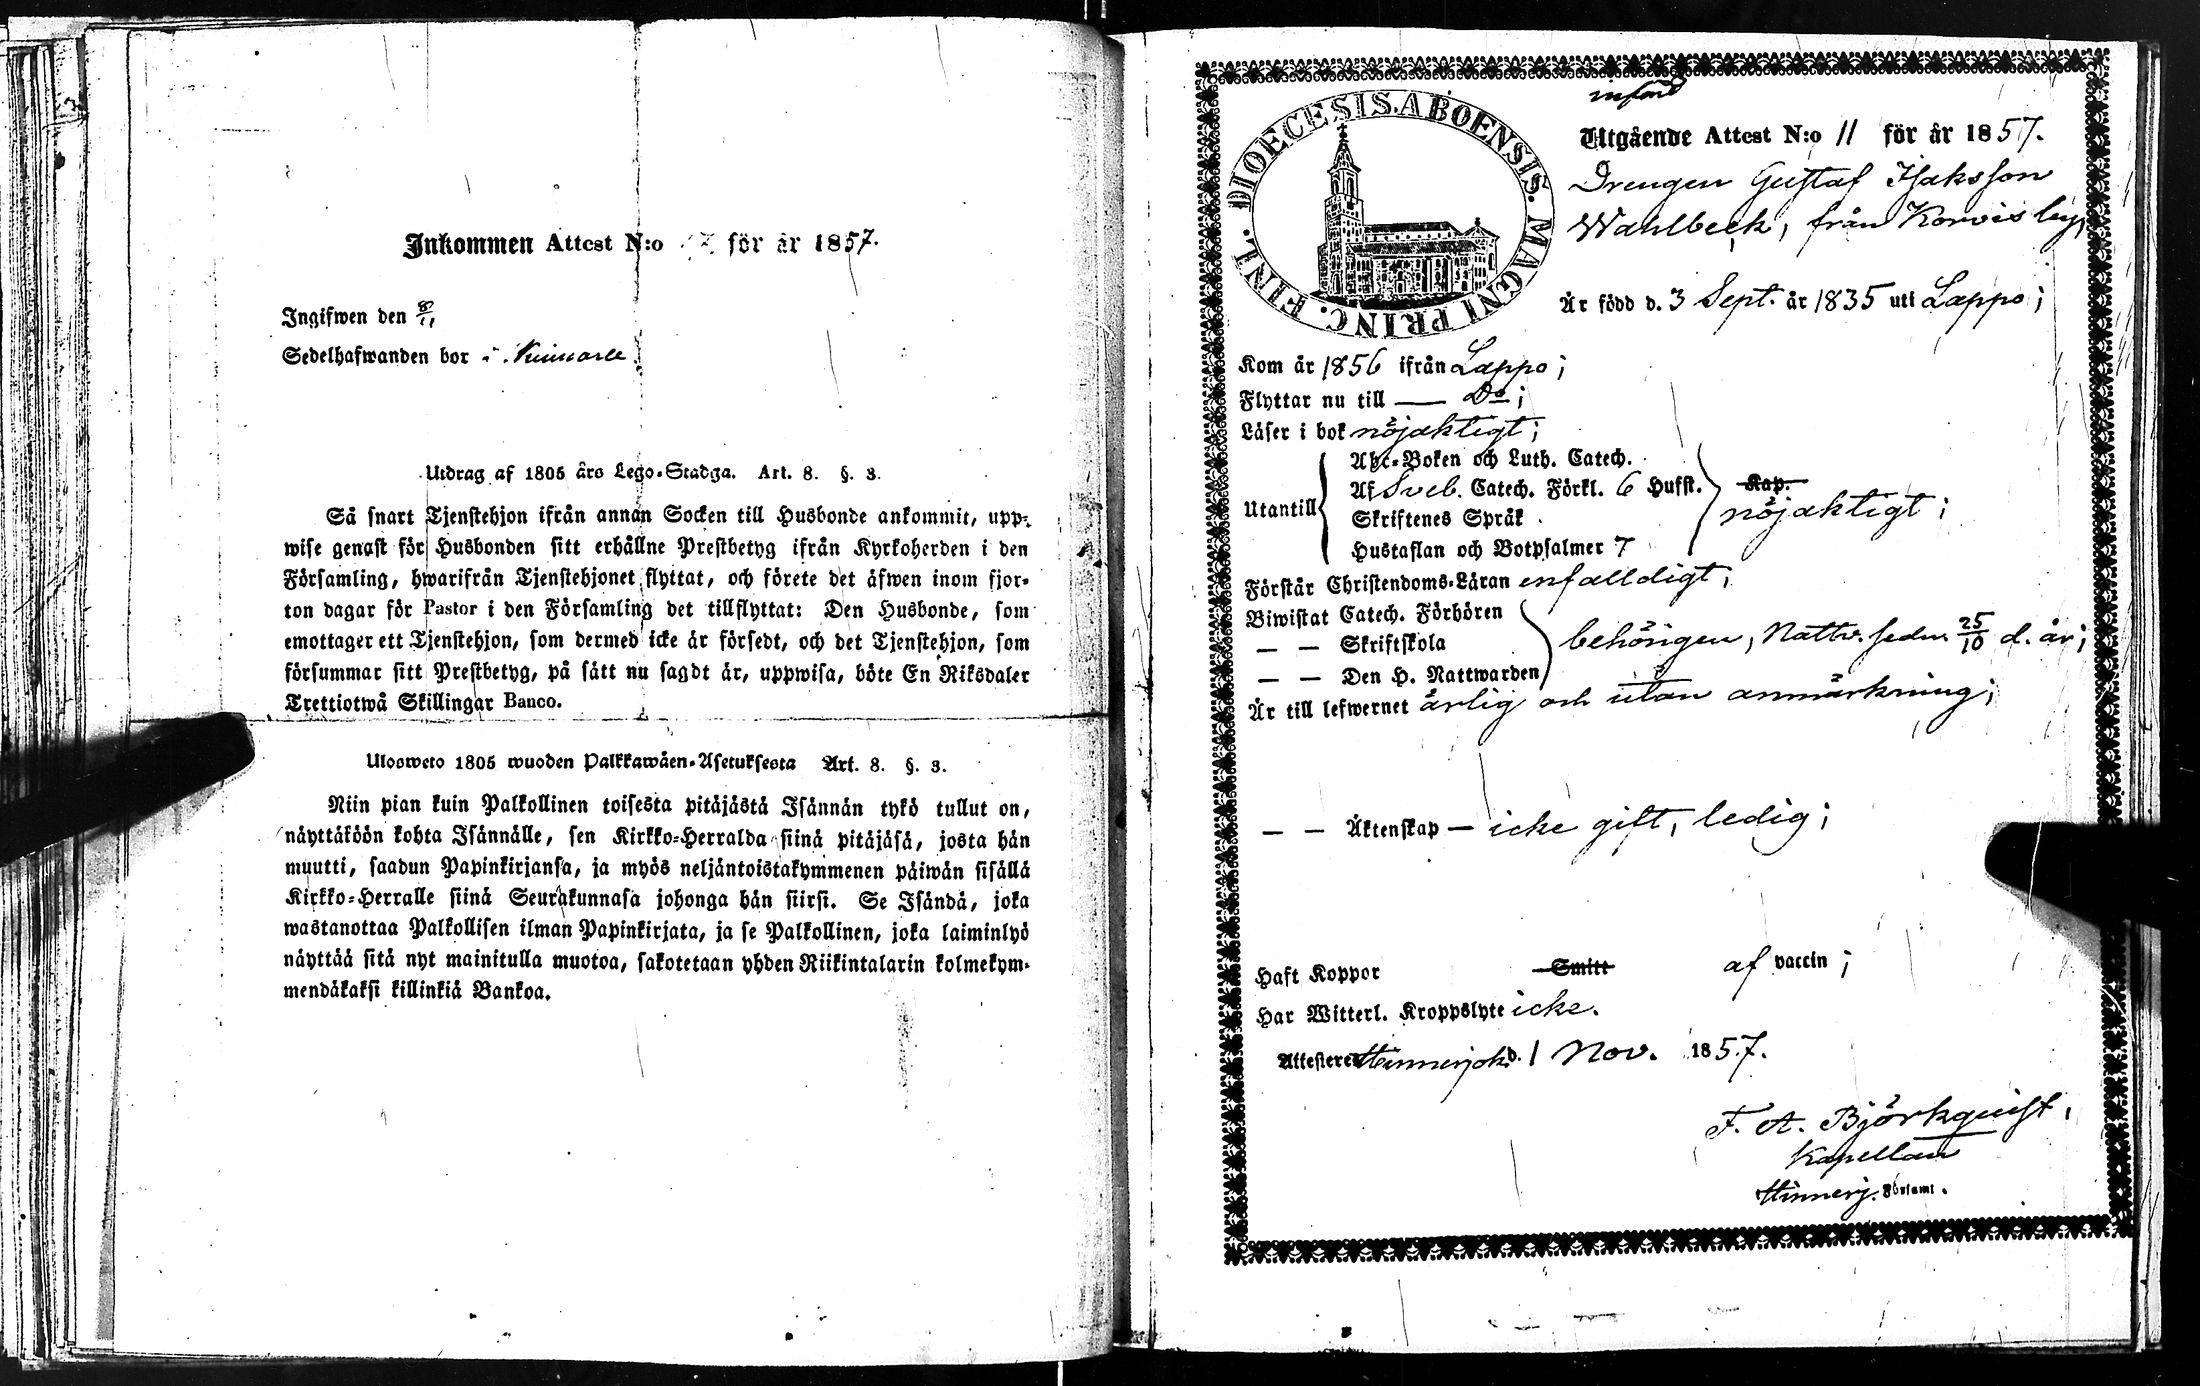 Inkommen Attest N:o för år 1857.
Ingifwen den 8/11
Sedelhafwanden bor i
Utdrag af 1805 års Lego-Stadga. Art. 8. §. 3.
Så snart Tjenstehjon ifrån annan Socken till Husbonde ankommit, upp-
wise genast för Husbonden sitt erhållne Prestbetyg ifrån Kyrkoherden i den
Församling, hwarifrån Tjenstehjonet flyttat, och förete det äfwen inom fjor-
ton dagar för Pastor i den Församling det tillflyttat: Den Husbonde, som
emottager ett Tjenstehjon, som dermed icke är försedt, och det Tjenstehjon, som
försummar sitt Prestbetyg, på sätt nu sagdt är, uppwisa, böte En Riksdaler
Trettiotwå Skillingar Banco.
Ulosweto 1805 wuoden Palkkawäen-Asetuksesta Art. 8. §. 3.
Niin pian kuin Palkollinen toisesta pitäjästä Isännän tykö tullut on,
näyttäköön kohta Isännälle, sen Kirkko-Herralda siinä pitäjäsä, josta hän
muutti, saadun Papinkirjansa, ja myös neljäntoistakymmenen päiwän sisällä
Kirkko-Herralle siinä Seurakunnasa johonga hän siirsi. Se Isändä, joka
wastanottaa Palkollisen ilman Papinkirjata, ja se Palkollinen, joka laiminlyö
näyttää sitä nyt mainitulla muotoa, sakotetaan yhden Riikintalarin kolmekym-
mendäkaksi killinkiä Bankoa.
DIOECESIS. ABOENSIS. MAGNI PRINC. FINL.
införd
Utgående Attest N:o 11 för år 1857.
Drengen Gustaf Isaksson
Wahlbeck, från Korvis by,
Är född d. 3 Sept. år 1835 uti Lappo;
Kom år 1856 ifrån Lappo;
Flyttar nu till — Do;
Läser i bok nöjaktigt;
Abc-Boken och Luth. Catech.
Af Sveb. Catech. Förkl. 6 Hufst. Kap.
Utantill Skriftenes Språk nöjaktigt;
Hustaflan och Botpsalmer 7
Förstår Christendoms-Läran enfalldigt,
Biwistat Catech. Förhören
— — Skriftskola behörigen, Nattv. sedn. 25/10 d. år;
— — Den H. Nattwarden
Är till lefwernet ärlig och utan anmärkning;
— — Äktenskap — icke gift, ledig;
Haft Koppor Smitt af vaccin;
Har Witterl. Kroppslyte icke.
Attesterer Hinnerjoki d. 1 Nov. 1857.
F. A. Björkquist,
Kapellan
Hinnerj. Församl.